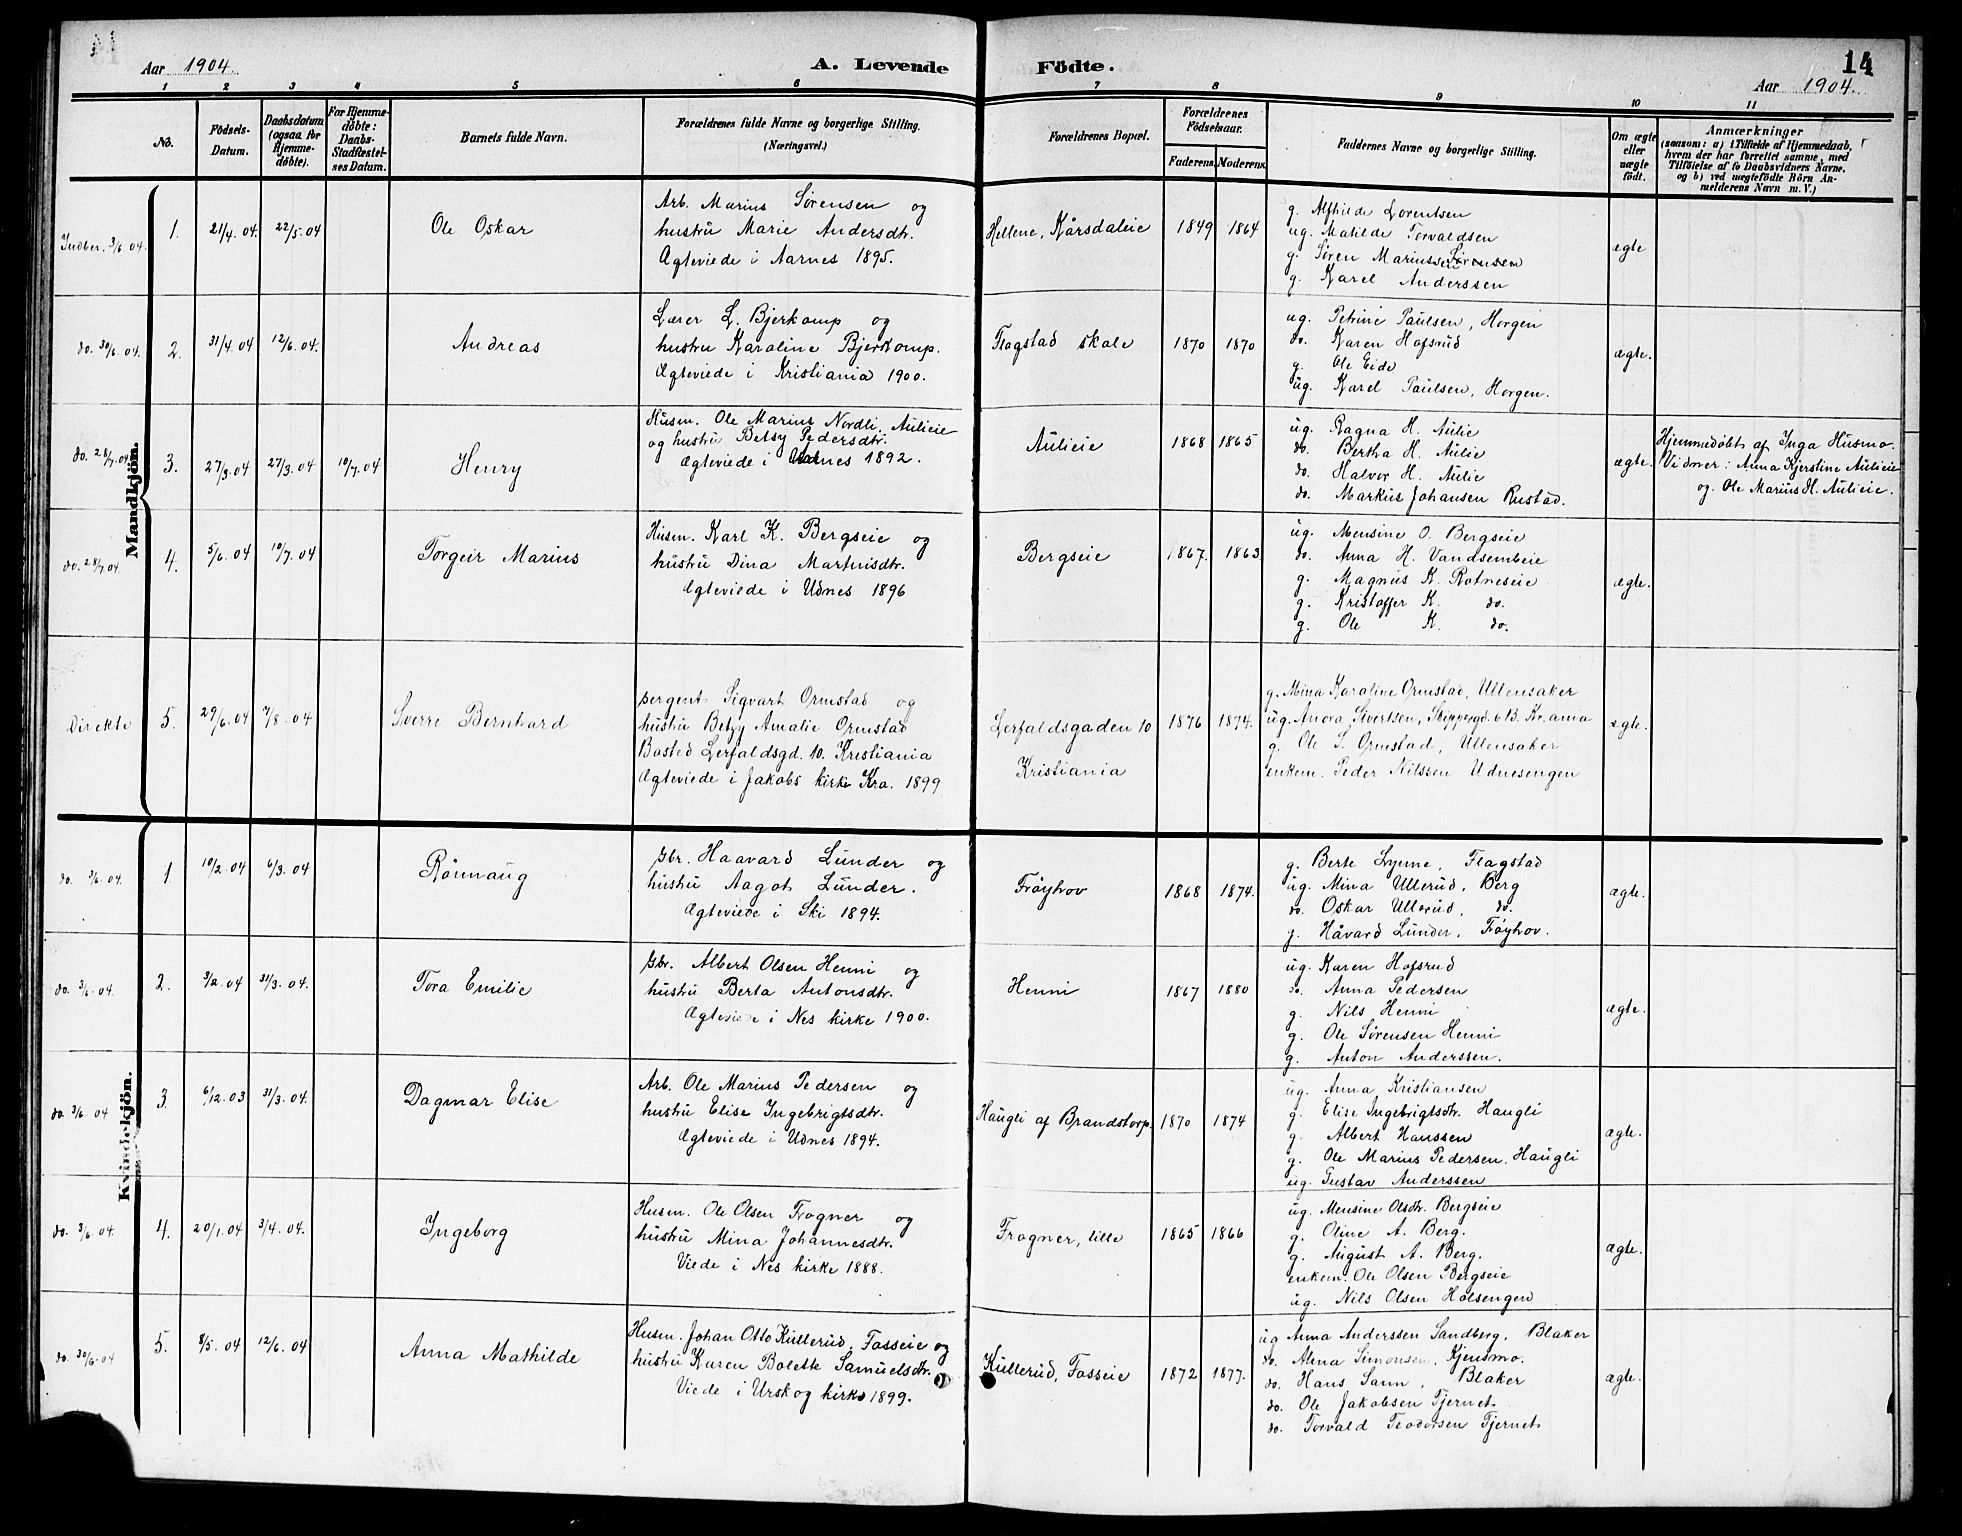 14
Aar 1904.
A. Levende Födte.
Aar 1904.
1 2 3 4 5 6 7 8 9 10 11
No.
Födsels-Datum.
Daabsdatum (ogsaa for Hjemme-döbte).
For Hjemme-döbte: Daabs-Stadfæstel-ses Datum.
Barnets fulde Navn.
Forældrenes fulde Navne og borgerlige Stilling. (Næringsvei.)
Forældrenes Bopæl.
Forældrenes Födselsaar.
Faderens. Moderens.
Faddernes Navne og borgerlige Stilling.
Om ægte eller uægte födt.
Anmærkninger
(saasom: a) i Tilfælde af Hjemmedaab,
hvem der har forrettet samme, med
Tilföielse af to Daabsvidners Navne,
og b) ved uægtefödte Börn An-
melderens Navn m. V.)
Mandkjön.
Indber. 3/6 04. 1. 21/4. 04. 22/5. 04 Ole Oskar
Arb. Marius Sørensen og
hustru Marie Andersdtr.
Ægteviede i Aarnes 1895.
Hellene, Kårsdaleie 1849 1864
g. Alfhilde Lorentsen
ug. Matilde Torvaldsen
g. Søren Mariussen Sørensen
g. Karel Anderssen
ægte
do. 30/6 04. 2. 31/4. 04 12/6. 04. Andreas
Lærer L. Bjerkomp og
hustru Karoline Bjerkomp.
Ægteviede i Kristiania 1900.
Flagstad skole 1870 1870
ug. Petrine Paulsen, Horgen
do. Karen Hofsrud
g. Ole Eide
ug. Karel Paulsen, Horgen.
ægte.
do. 28/7. 04 3. 27/3. 04 27/3. 04 10/7. 04 Henry
Husm. Ole Marius Nordli, Aulieie
og hustru Betsy Pedersdtr.
Ægteviede i Udnes 1892.
Aulieie 1868 1865
ug. Ragna H. Aulie
do. Bertha H. Aulie
do. Halvor H. Aulie
do. Markus Johansen Rustad.
ægte.
Hjemmedøbt af Inga Husmo.
Vidner: Anna Kjerstine Aulieie
og Ole Marius H. Aulieie.
do. 28/7. 04. 4. 5/6. 04 10/7. 04 Torgeir Marius
Husm. Karl K. Bergseie og
hustru Dina Martinisdtr.
Ægteviede i Udnes 1896
Bergseie 1867. 1863
ug. Mensine O. Bergseie
do. Anna H. Vandsembeie
g. Magnus K. Rotneseie
g. Kristoffer K. do.
g. Ole K. do.
ægte.
Direkte 5. 29/6. 04 7/8. 04 Sverre Bernhard
Sergent Sigvart Ormstad og
hustru Betzy Amalie Ormstad
Bosted Lerfaldsgd. 10. Kristiania
Ægteviede i Jakobs kirke Kra. 1899
Lerfaldsgaden 10
Kristiania
1876 1874.
g. Mina Karoline Ormstad, Ullensaker
ug. Anora Sivertsen, Skippergd. 6 B. Kr.ania
g. Ole S. Ormstad, Ullensaker
enkem. Peder Nilssen Udnesengen
ægte.
Kvindekjön.
do. 3/6. 04. 1. 10/2. 04 6/3. 04 Rönnaug
Gbr. Haavard Lunder og
hustru Aagot Lunder.
Ægteviede i Ski 1894.
Frøyhov 1868 1874.
g. Berte Lynne, Flagstad
ug. Mina Ullerud, Berg
do. Oskar Ullerud, do.
g. Håvard Lunder, Frøyhov.
ægte.
do. 3/6. 04. 2. 3/2. 04 31/3. 04. Tora Emilie
Gbr. Albert Olsen Henni og
hustru Berta Antonsdtr.
Ægteviede i Nes kirke 1900.
Henni 1867 1880
ug. Karen Hofsrud
do. Anna Pedersen
g. Nils Henni
g. Ole Sørensen Henni
g. Anton Anderssen.
ægte.
do. 3/6. 04 3. 6/12. 03 31/3. 04. Dagmar Elise
Arb. Ole Marius Pedersen og
hustru Elise Ingebrigtsdtr.
Ægteviede i Udnes 1894.
Haugli af Brandstorp. 1870 1874
ug. Anna Kristiansen
g. Elise Ingebrigtsdtr. Haugli
g. Albert Hanssen
g. Ole Marius Pedersen, Haugli
ug. Gustav Anderssen
ægte.
do. 3/6. 04. 4. 20/1. 04 3/4. 04. Ingeborg
Husm. Ole Olsen Frogner og
hustru Mina Johannesdtr.
Viede i Nes kirke 1888.
Frogner, lille 1865 1866
ug. Mensine Olsdtr. Bergseie
g. Oline A. Berg.
g. August A. Berg.
enkem. Ole Olsen Bergseie
ug. Nils Olsen Holsengen
ægte.
do. 30/6. 04 5. 8/5. 04 12/6. 04 Anna Mathilde
Husm. Johan Otto Kullerud, Fosseie og
hustru Karen Bolette Samuelsdtr.
Viede i Urskog kirke 1899.
Kullerud, Fosseie 1872 1877.
ug Anna Anderssen Sandberg, Blaker
do. Alma Simonsen, Kjensmo.
do. Hans Sann, Blaker
do. Ole Jakobsen Tjernet
do. Torvald Teodorsen Tjernet
ægte.